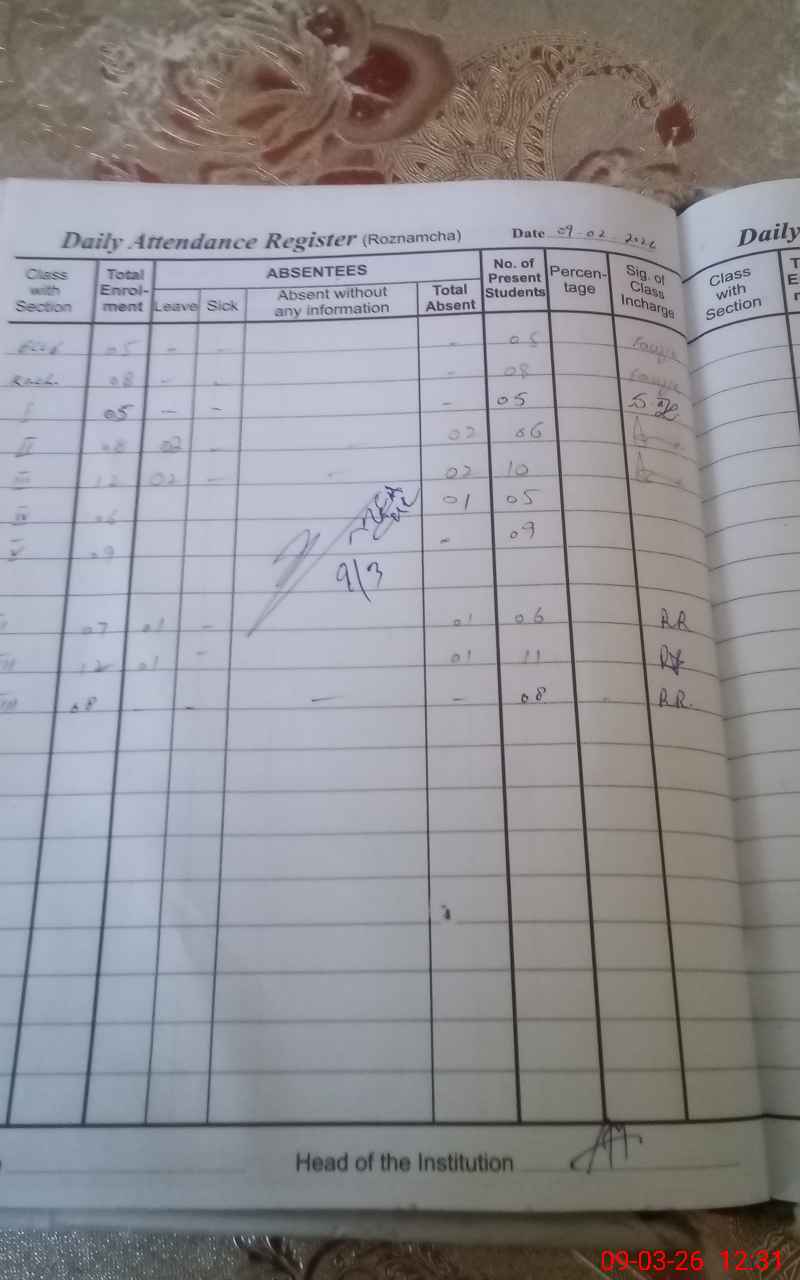 Daily Attendance Register (Roznamcha) Date 09-02-2026
Class with Section Total Enrol-ment ABSENTEES Leave Sick Absent without any information Total Absent No. of Present Students Percen-tage Sig. of Class Incharge
05 - - - 05
Kach. 08 - - - 08
I 05 - - - 05
II 08 02 - 02 06
III 12 02 - - 02 10
IV 06 01 05
V 09 - 09
9/3
07 01 - 01 06 RR
12 01 - 01 11
08 - - - - 08 RR
Head of the Institution
Daily
Class with Section
09-03-26 12:31